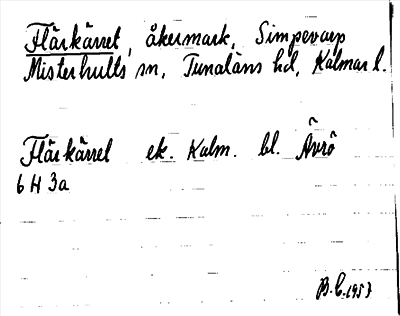 Flärkärret, åkermark, Simpevarp
Misterhults sn, Tunaläns hd, Kalmar l.
Flärkärret ek. Kalm. bl. Ävrö
6 H 3a
B.C. 1953